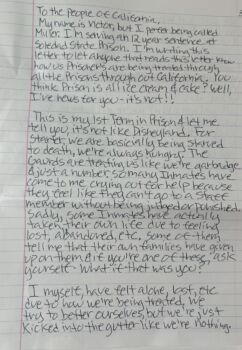 To the people of California,
My name is Victor, but I prefer being called
Miller. I'm serving a 12 year sentence at
Soledad State Prison. I'm writing this
letter to let anyone that reads this letter know
how us Prisoners are being treated through
all the Prisons through out California. You
think Prison is all ice cream & cake? Well,
I've news for you - it's not!!
This is my 1st Term in Prison & let me
tell you, it's not like Disneyland. For
starter, we are basically being starved
to death, we're always hungry. The
Guards are treating us like we're garbage
& just a number. So many Inmates have
come to me crying out for help because
they feel like they can't go to a staff
member without being judged or punished.
Sadly, some Inmates have actually
taken their own life due to feeling
lost, abandoned, etc. Some of them
tell me that their own families have given
up on them & if you're one of these, ask
yourself - what if that was you?
I myself, have felt alone, lost, etc
due to how we're being treated, we
try to better ourselves, but we're just
kicked into the gutter like we're nothing.